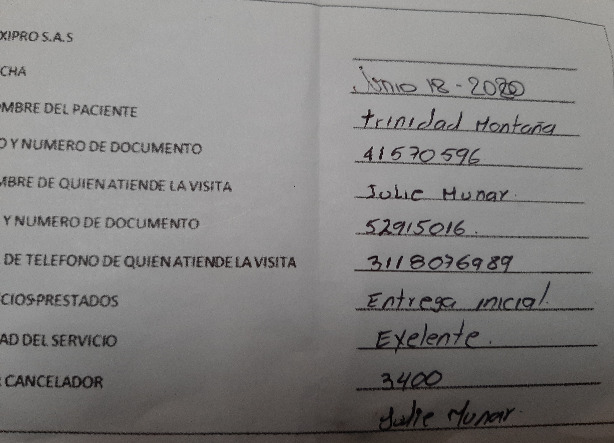 XIPRO S.A.S
CHA Junio 18-2020
OMBRE DEL PACIENTE Trinidad Montaña
O Y NUMERO DE DOCUMENTO 41570596
MBRE DE QUIEN ATIENDE LA VISITA Julie Munar.
Y NUMERO DE DOCUMENTO 52915016.
DE TELEFONO DE QUIEN ATIENDE LA VISITA 3118076989
CIOS PRESTADOS Entrega inicial.
AD DEL SERVICIO Exelente.
CANCELADOR 3400
Julie Munar.